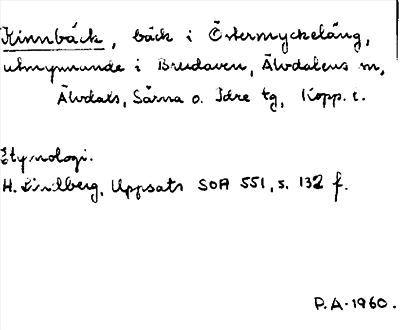 Kinnbäck, bäck i Östermyckeläng,
utmynnande i Brudaven, Älvdalens m,
Älvdals, Särna o. Idre tg, Kopp. l.
Etymologi.
H. Lindberg, Uppsats SOA 551, s. 132 f.
P.A-1960.